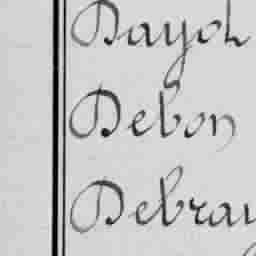 Dayot
Debon
Debray